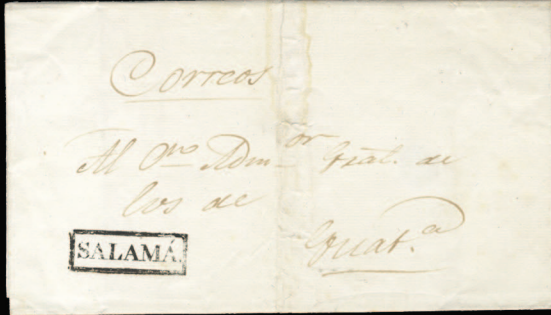 Correos
Al Sr. Adm.or Gral. de
los de
Guat.a
SALAMÁ.